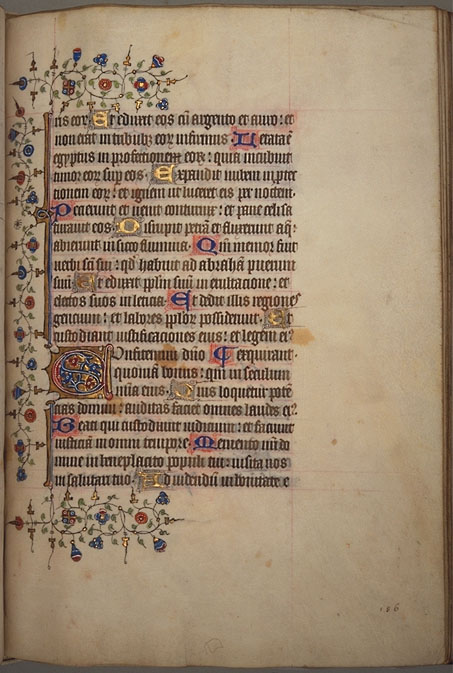 ris eoꝝ. Et eduxit eos cū argento et auro: et
non erat in tribubꝫ eoꝝ infirmus. Letata ē
egyptus in profectione eoꝝ: quia incubuit
timor eoꝝ suꝑ eos. Expandit nubem in ꝓtec
tionem eoꝝ: et ignem ut luceret eis per noctem.
Pecierunt et uenit coturnix: et pane celi sa
turauit eos. Disrupit petrā et fluxerunt aq̄:
abierunt in sicco flumina. Qm̄ memor fuit
uerbi sc̄i sui: qd̄ habuit ad abraham puerum
suū. Et eduxit pplm̄ suū in exultatione: et
electos suos in leticia. Et dedit illis regiones
gencium: et labores pploꝝ possederunt. Et
custodiant iustificaciones eius: et legem eiꝰ
Confitemini dn̄o exquirant.
quoniā bonus: qm̄ in seculum
mīa eius. Quis loquetur potēn
cias domini: auditas faciet omnes laudes eiꝰ.
Beati qui custodiunt iudicium: et faciunt
iusticiam in omni tempore. Memento nr̄i do
mine in beneplacito populi tui: uisita nos
in salutari tuo. Ad uidendū in bonitate e
186